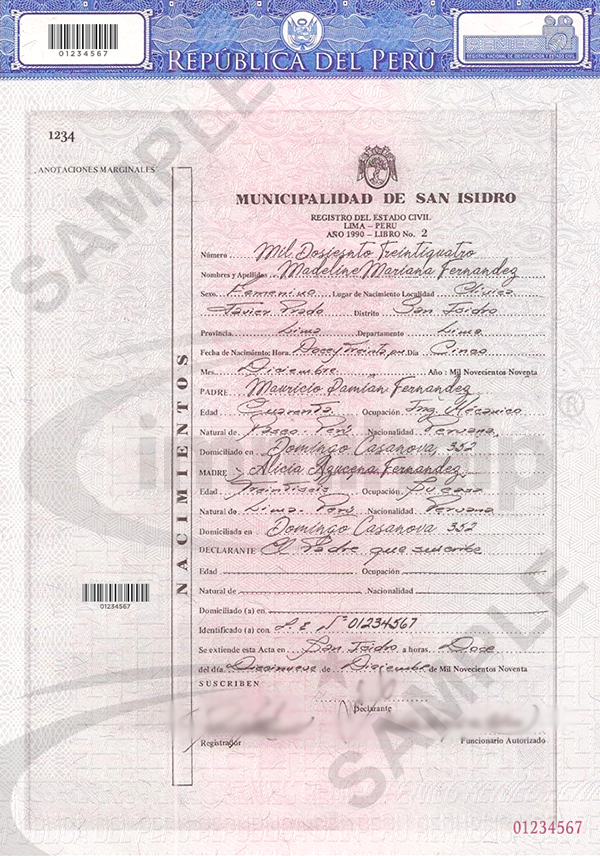 01234567
REPÚBLICA DEL PERÚ
REGISTRO NACIONAL DE IDENTIFICACIÓN Y ESTADO CIVIL
1234
ANOTACIONES MARGINALES
MUNICIPALIDAD DE SAN ISIDRO
REGISTRO DEL ESTADO CIVIL
LIMA – PERU
AÑO 1990 – LIBRO No. 2
Número Mil Dosiesnto Treintiquatro
Nombres y Apellidos Madeline Mariana Fernandez
Sexo Femenino Lugar de Nacimiento Localidad Clinica
Javier Prado Distrito San Isidro
Provincia Lima Departamento Lima
Fecha de Nacimiento: Hora Doce y Treinta pm Día Cinco
Mes Diciembre Año : Mil Novecientos Noventa
PADRE Mauricio Damian Fernandez
Edad Cuarenta Ocupación Ing. Mecanico
Natural de Pasco - Perú Nacionalidad Peruana
Domiciliado en Domingo Casanova 352
MADRE Alicia Azucena Fernandez
Edad Treintiseis Ocupación Su casa
Natural de Lima - Perú Nacionalidad Peruana
Domiciliada en Domingo Casanova 352
DECLARANTE El Padre que suscribe
Edad Ocupación
Natural de Nacionalidad
Domiciliado (a) en
Identificado (a) con L.E. N° 01234567
Se extiende esta Acta en San Isidro a horas Doce
del día Diecinueve de Diciembre de Mil Novecientos Noventa
SUSCRIBEN
Declarante
Registrador Funcionario Autorizado
NACIMIENTOS
01234567
01234567
SAMPLE
SAMPLE
SAMPLE